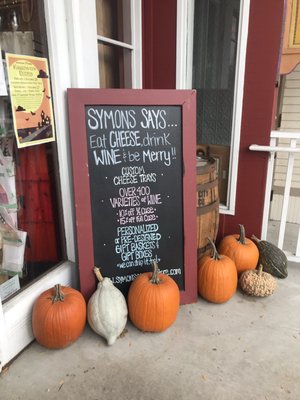 SYMONS SAYS...
Eat CHEESE, drink
WINE & be Merry!!
CUSTOM
CHEESE TRAYS
OVER 400
VARIETIES OF WINE
10% off ½ CASE
15% off FULL CASE
PERSONALIZED
or PRE-DESIGNED
GIFT BASKETS &
GIFT BOXES
*we can ship it!*